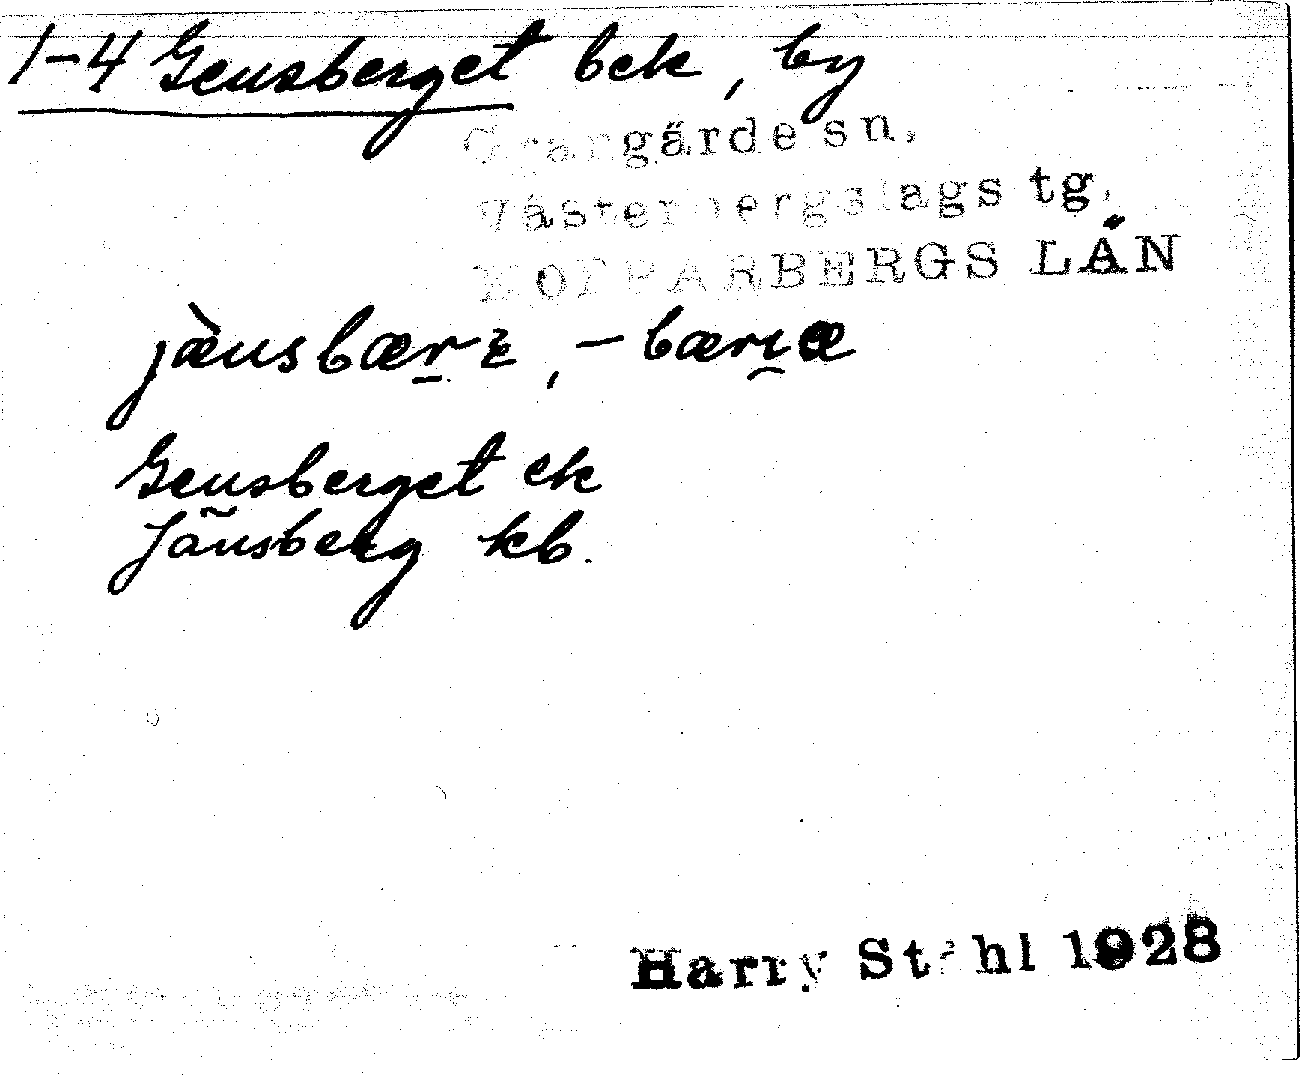 1-4 Gensberget bek, by
Grangärde sn,
Västerbergslags tg,
KOPPARBERGS LÄN
jæ̀nsbær̲ε, -bærıæ
Gensberget ek
Jänsberg kb.
Harry Ståhl 1928